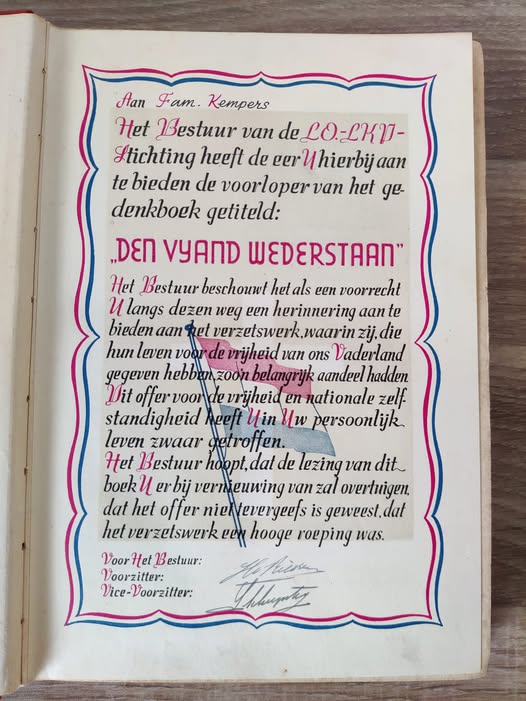 Aan Fam. Kempers
Het Bestuur van de LO.-LKP-
Stichting heeft de eer U hierbij aan
te bieden de voorloper van het ge-
denkboek getiteld:
„DEN VYAND WEDERSTAAN”
Het Bestuur beschouwt het als een voorrecht
U langs dezen weg een herinnering aan te
bieden aan het verzetswerk, waarin zij, die
hun leven voor de vrijheid van ons Vaderland
gegeven hebben, zoo'n belangrijk aandeel hadden.
Dit offer voor de vrijheid en nationale zelf-
standigheid heeft U in Uw persoonlijk
leven zwaar getroffen.
Het Bestuur hoopt, dat de lezing van dit
boek U er bij vernieuwing van zal overtuigen,
dat het offer niet tevergeefs is geweest, dat
het verzetswerk een hooge roeping was.
Voor Het Bestuur:
Voorzitter:
Vice-Voorzitter: